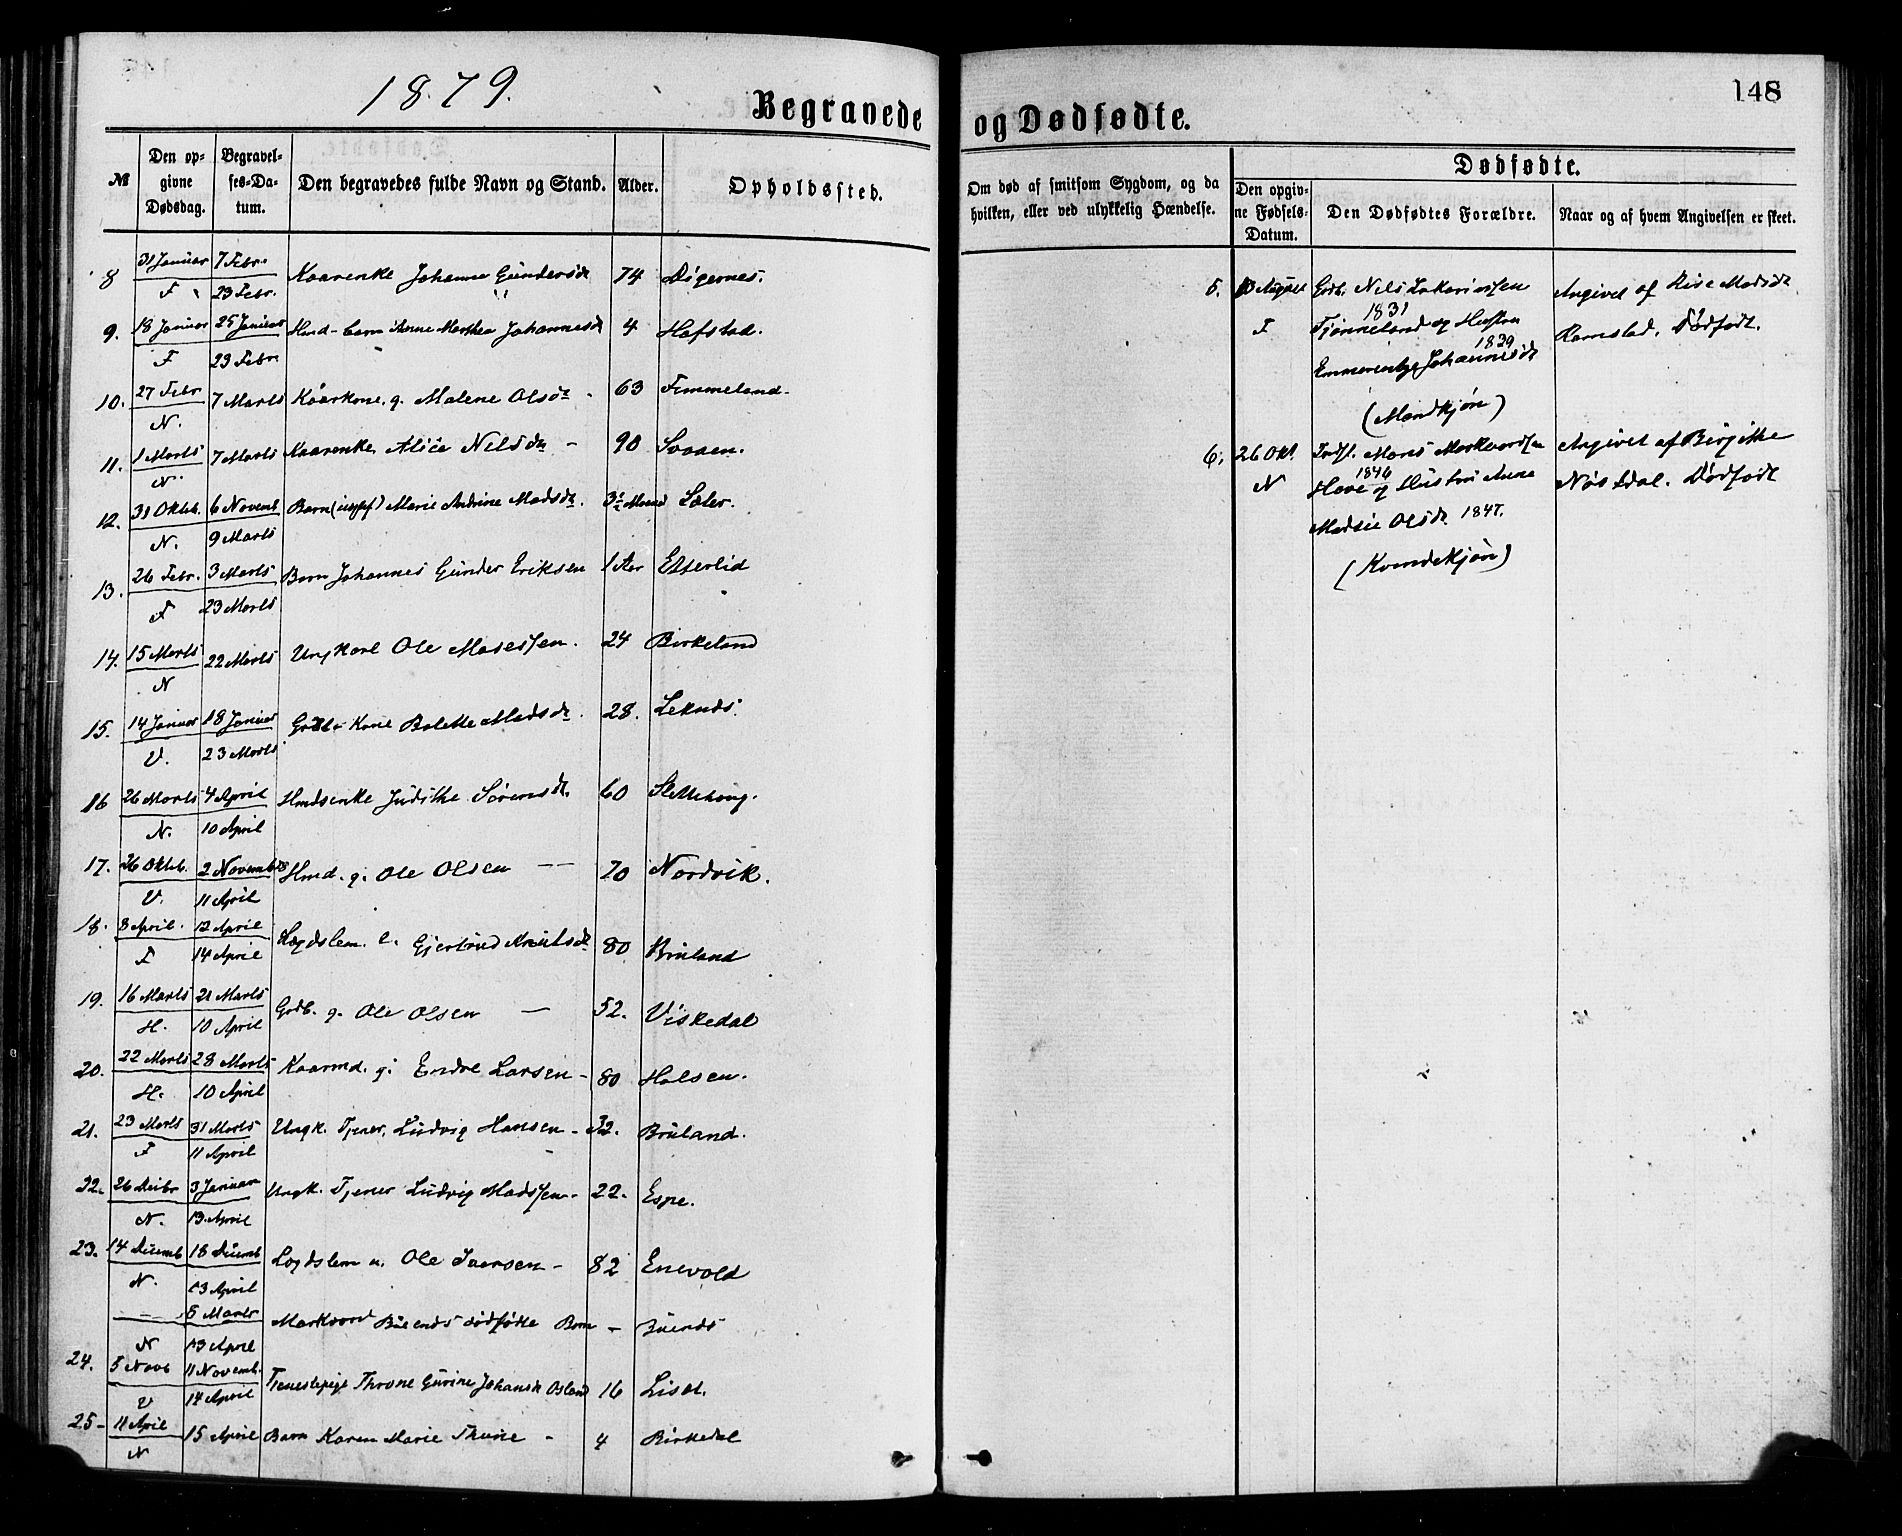 148
1879.
Begravede og Dødfødte.
№ Den opgivne Dødsdag. Begravelses-Datum. Den begravedes fulde Navn og Stand. Alder. Opholdssted.
Om død af smitsom Sygdom, og da hvilken, eller ved ulykkelig Hændelse. Dødfødte.
Den opgivne Fødsels-Datum. Den Dødfødtes Forældre. Naar og af hvem Angivelsen er skeet.
8 31 Januar 7 Febr. Johanne Gundersdr 74
F 23 Febr.
9. 18 Januar 25 Januar Hmd-barn Anne Marthea Johannesdr 4 Hafstad.
F 23 Febr
10. 27 Febr 7 Marts Kaarkone g. Malene Olsdr 63 Fimmeland
N.
11. 1 Marts 7 Marts Kaarenke Alice Nilsdr - 90 Svaaen.
N.
12. 31 Oktb. 6 Novemb Barn Marie Andrine Madsdr. Sæter.
N. 9 Marts
13. 26 Febr. 3 Marts Barn Johannes Gunder Eriksen 1 Aar Etterlid
F 23 Marts
14. 15 Marts 22 Marts Ungkarl Ole Mosessen. 24 Birkeland
N
15. 14 Januar 18 Januar Kone Bolette Madsdr. 28. Leknes.
V. 23 Marts
16 26 Marts 4 April Hmdsenke Judithe Sørensdr. 60
N. 10 April
17. 26 Oktb. 2 Novemb Hmd. g. Ole Olsen -- 70 Nordvik.
V. 11 April
18. 8 April. 12 April Lægdslem. e. Gjertrud Knutsdr 80 Bruland
F 14 April
19. 16 Marts 21 Marts Grdb. g. Ole Olsen — 52. Viskedal
H. 10 April
20. 22 Marts 28 Marts Kaarmd. g. Endre Larsen - 80 Halsen.
H. 10 April
21. 23 Marts 31 Marts Ungk. Tjener, Ludvig Hansen - 32. Bruland.
F 11 April
22. 26 Decbr 3 Januar Ungk. Tjener Ludvig Madssen - 22. Espe.
N. 13 April
23. 14 Decemb 18 Decemb Lægdslem u. Ole Iversen - 82 Enevold
N. 13 April
— 8 Marts Markvard Buenes dødfødte Barn - Buenes
N 13 April
24. 5 Novb 11 Novemb. Tjenestepige Throne Gurine Johansdr Osland 16
V 14 April
25- 11 April 15 April Barn Karen Marie Thuve - 4 Birkedal
N
5. August Grdb. Nels Zakariassen Angivet af Madsdr
1831
F Tjønneland og Hustru Ramstad. Dødfødt.
1839
Emmerentze Johannesdr
(Mandkjøn)
6. 26 Okt. Indst. Mons Markvardsen Angivet af Birgitte
1846
N Hove og Hustru Anne Nøstdal. Dødfødt
Madsie Olsdr. 1847.
(Kvindekjøn)